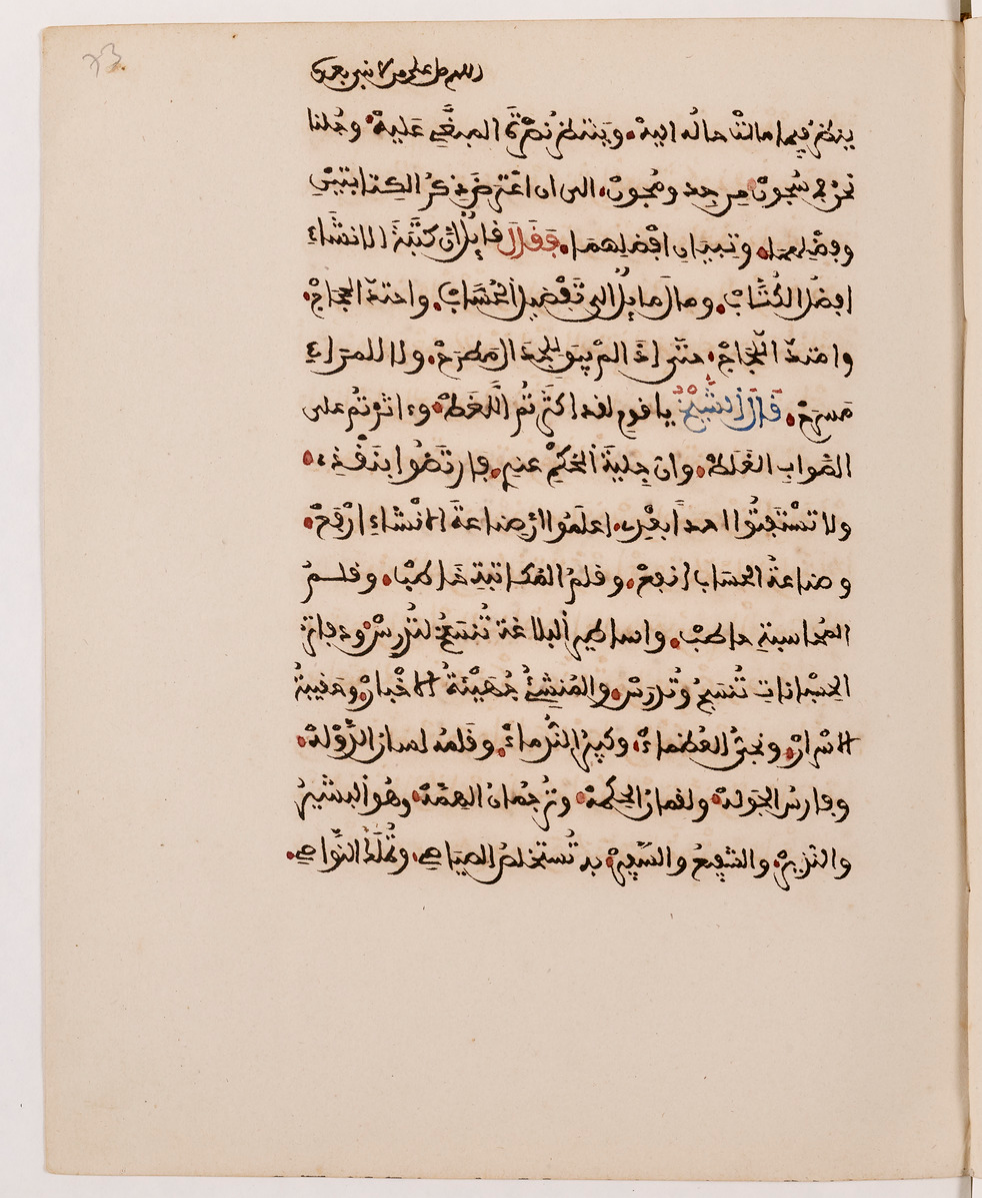 73
اللهم صل على من لا نبي بعده
ينظر فيما ءالت حاله اليه. وينتظر نصرة المبغي عليه. وجلنا
في شجون من جد ومجون. الى ان اعترض ذكر الكتابتين
وفضلهما. وتبيان افضلهما. فقال قايل ان كتبة الانشاء
افضل الكتاب. ومال مايل الى تفضيل الحساب. واحتد الحجاج
وامتد اللجاج. حتى اذا لم يبق للجدال مطرح. ولا للمراء
مسرح. قال الشيخ يا قوم لقد اكثرتم اللغط. وءاثرتم على
الصواب الغلط. وان جلية الحكم عندي. فارتضوا بنقدي.
ولا تستفتوا احدا بعدي. اعلموا ان صناعة الانشاء ارفع.
وصناعة الحساب انفع. وقلم المكاتبة خاطب. وقلم
المحاسبة حاطب. واساطير البلاغة تنسخ لتدرس. ودفاتر
الحسبانات تنسخ وتدرس. والمنشئ جهينة الاخبار. وحقيبة
الاسرار. ونجي العظماء. وكبير الندماء. وقلمه لسان الدولة.
وفارس الجولة. ولقمان الحكمة. وترجمان الهمة. وهو البشير
والنذير. والشفيع والسفير. به تستخلص الصياصي. وتملك النواصي.